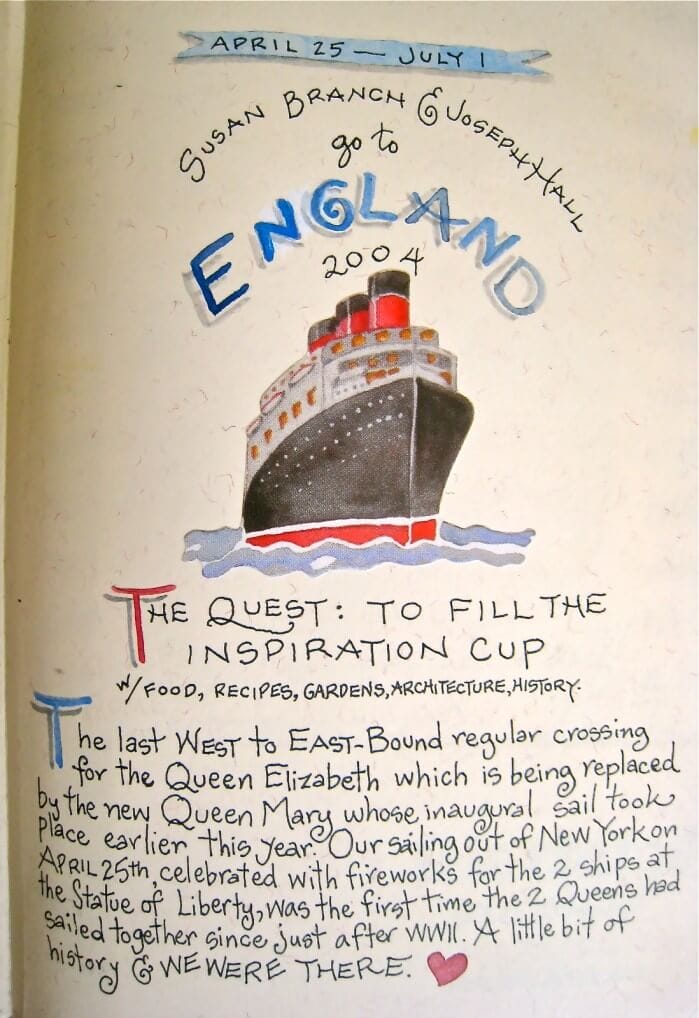 APRIL 25 — JULY 1
SUSAN BRANCH & JOSEPH HALL
go to
ENGLAND
2004
THE QUEST: TO FILL THE
INSPIRATION CUP
W/ FOOD, RECIPES, GARDENS, ARCHITECTURE, HISTORY.
The last WEST to EAST-Bound regular crossing
for the Queen Elizabeth which is being replaced
by the new Queen Mary whose inaugural sail took
place earlier this year. Our sailing out of New York on
APRIL 25th, celebrated with fireworks for the 2 ships at
the Statue of Liberty, was the first time the 2 Queens had
sailed together since just after WWII. A little bit of
history & WE WERE THERE.